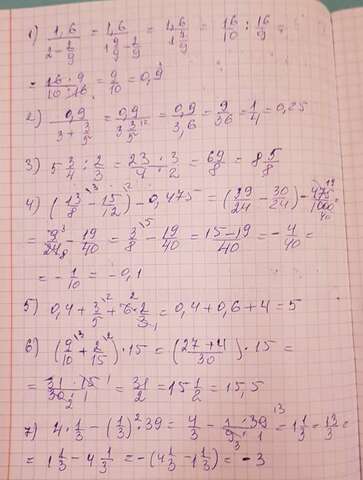 1) 1,6 / (2 - 2/9) = 1,6 / (1 9/9 - 2/9) = 1,6 / (1 7/9) = 16/10 : 16/9 =
= (16 · 9) / (10 · 16) = 9/10 = 0,9
2) 0,9 / (3 + 3/5) = 0,9 / (3 3/5) = 0,9 / 3,6 = 9/36 = 1/4 = 0,25
3) 5 3/4 : 2/3 = 23/4 · 3/2 = 69/8 = 8 5/8
4) (13/8 - 15/12) - 0,475 = (39/24 - 30/24) - 475/1000 =
= 9/24 - 19/40 = 3/8 - 19/40 = (15 - 19)/40 = - 4/40 =
= - 1/10 = - 0,1
5) 0,4 + 3/5 + 6 · 2/3 = 0,4 + 0,6 + 4 = 5
6) (9/10 + 2/15) · 15 = ((27 + 4)/30) · 15 =
= (31 · 15)/30 = 31/2 = 15 1/2 = 15,5
7) 4 · 1/3 - (1/3)² · 39 = 4/3 - (1 · 39)/9 = 1 1/3 - 13/3 =
= 1 1/3 - 4 1/3 = - (4 1/3 - 1 1/3) = - 3